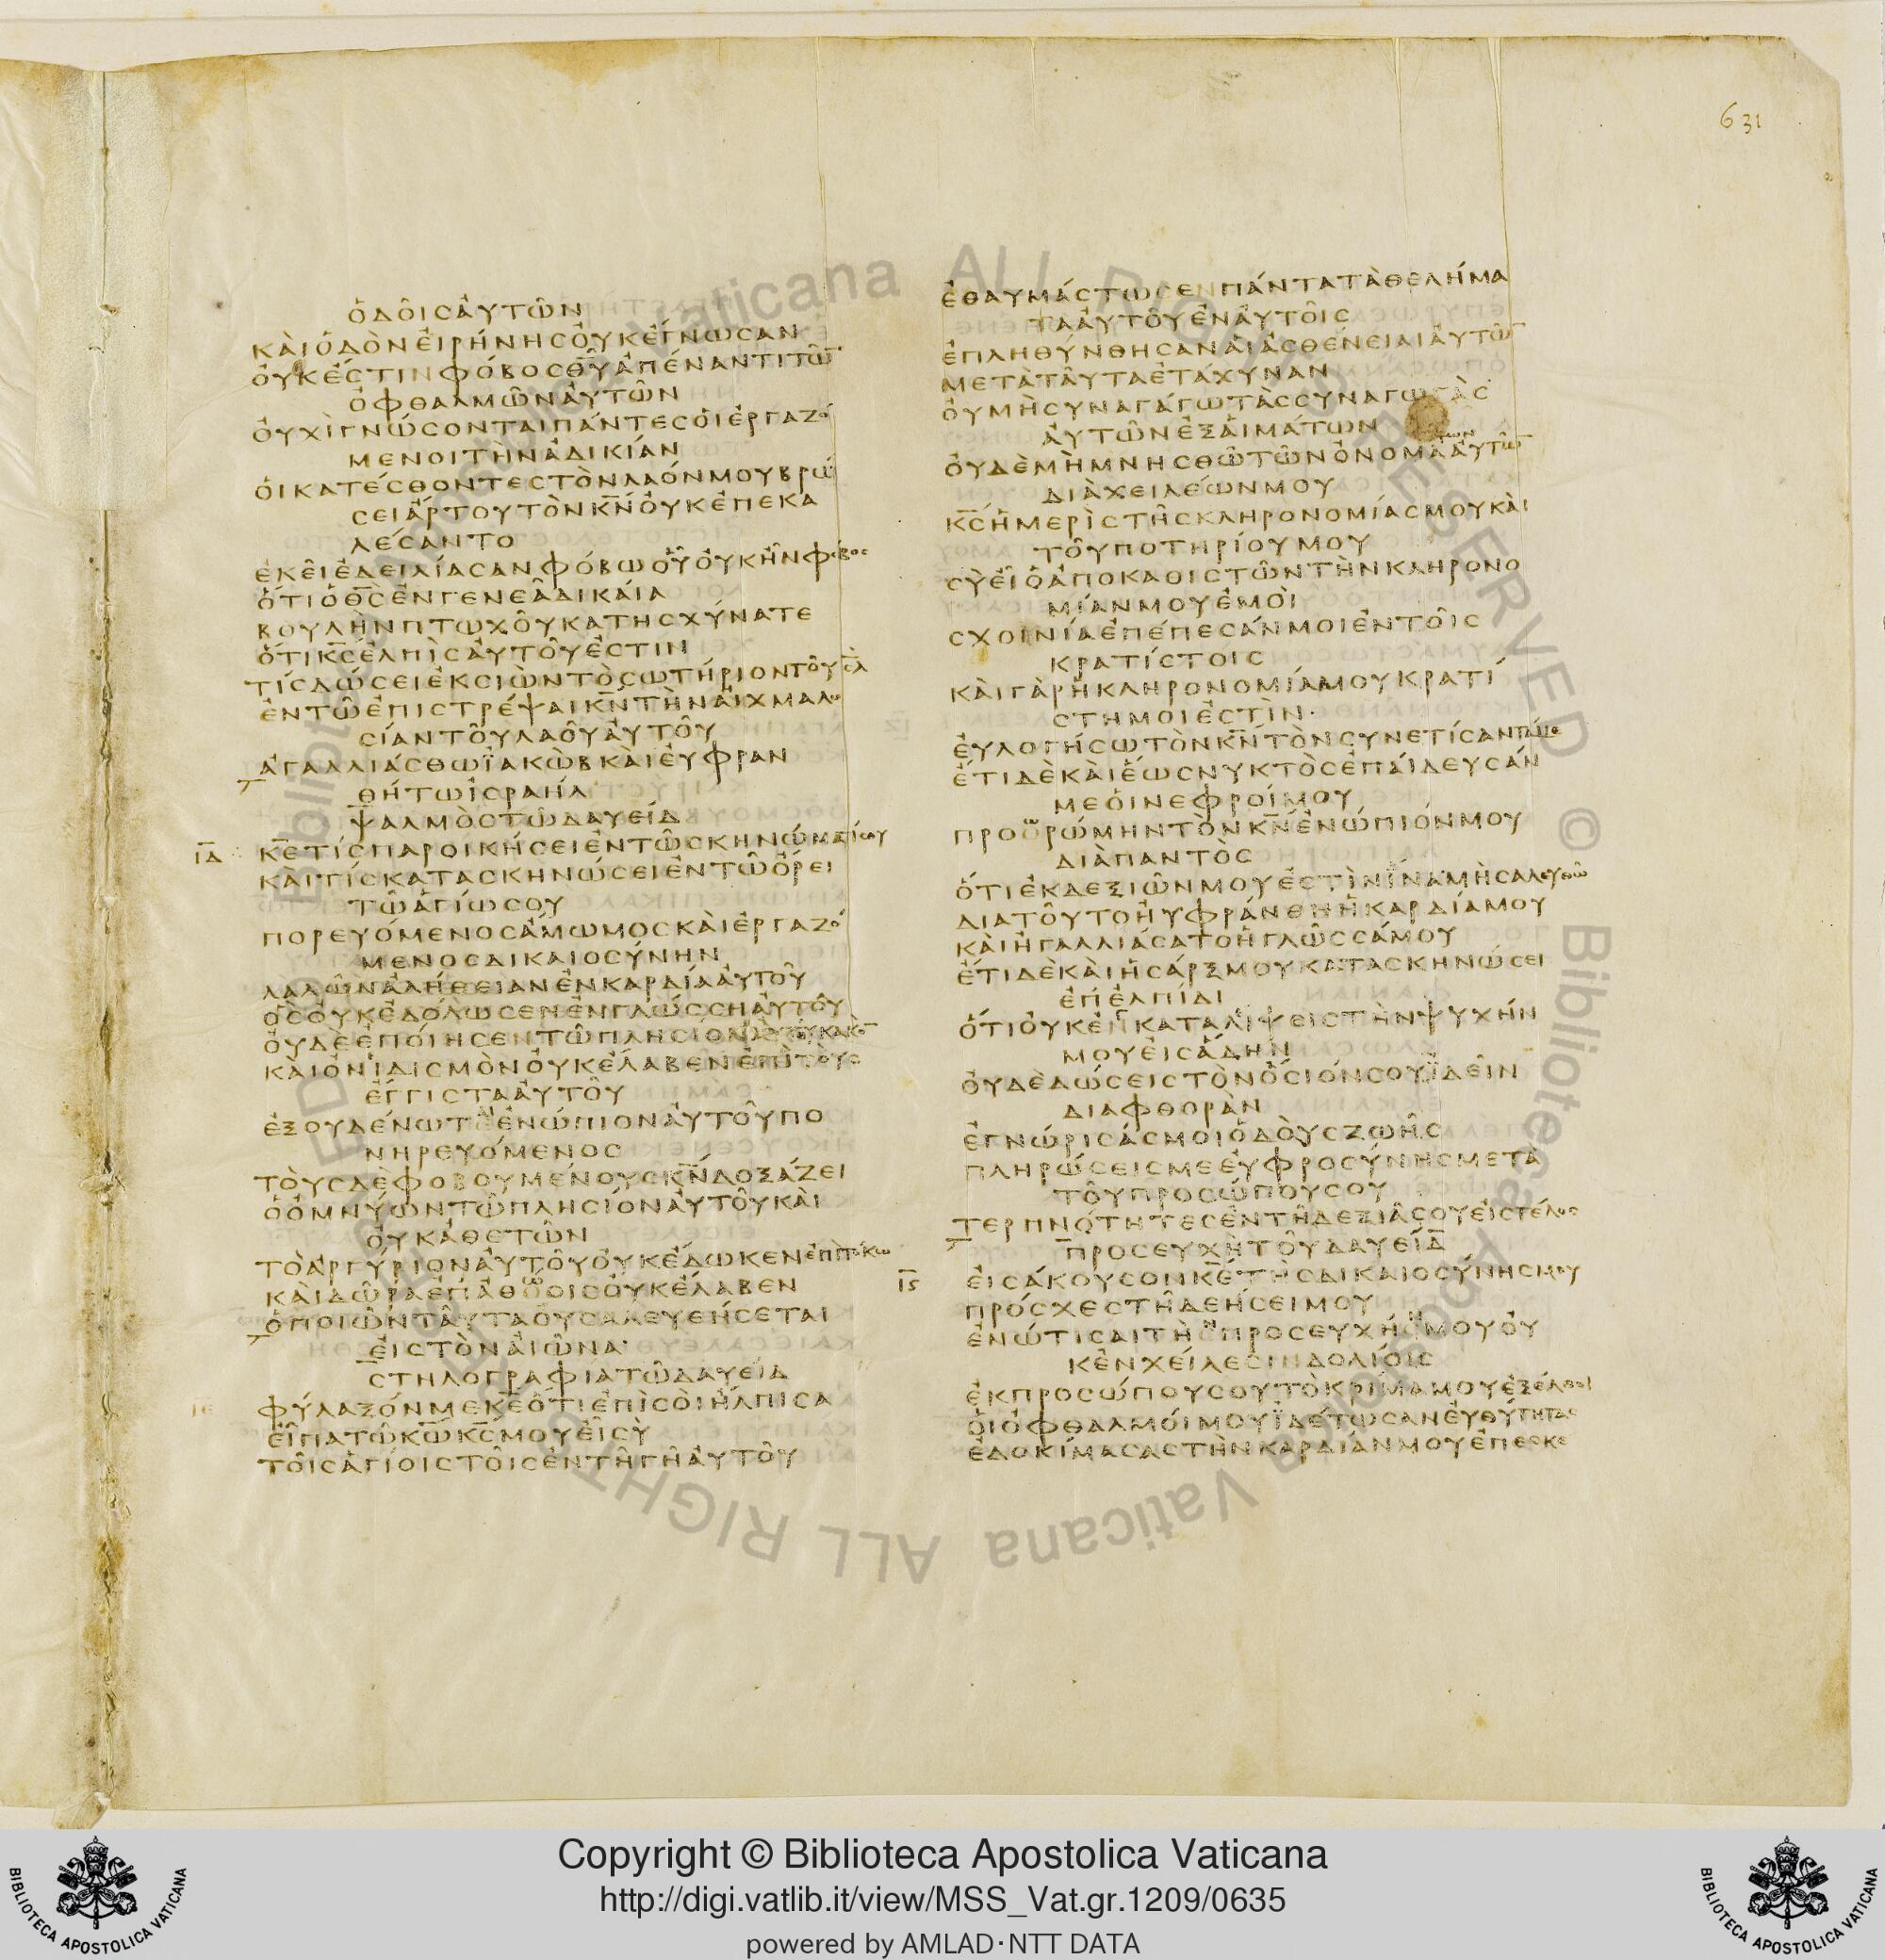 631
ὁδοῖσἀυτῶν
κὰιὁδὸνἐιρήνησὀυκἔγνωσαν
ὀυκἔστινφόβοσθ̅υ̅ἀπέναντιτῶ̅
ὀφθαλμῶνἀυτῶν
ὀυχὶγνώσονταιπάντεσὁιἐργαζό
μενοιτὴνἀδικίαν
ὁικατέσθοντεστὸνλαόνμουβρώ
σειἄρτουτὸνκ̅ν̅ὀυκἐπεκα
λέσαντο
ἐκεῖἐδειλίασανφόβωοὗὀυκἦνφόβοσ
ὅτιὁθ̅σ̅ἐνγενεᾶδικάια
βουλὴνπτωχοῦκατησχύνατε
ὅτικ̅σ̅ἐλπὶσἀυτοῦἐστιν
τίσδώσειἐκσιὼντὸσωτήριοντοῦι̅σ̅λ̅
ἐντῶἐπιστρέψαικ̅ν̅τὴνἀιχμαλω
σίαντοῦλαοῦἀυτοῦ
ἀγαλλιάσθωϊακὼβκὰιἐυφραν
θήτωἰσραήλ
ψαλμὸστῶδαυείδ
ΙΔ κ̅ε̅τίσπαροικήσειἐντῶσκηνώματίσου
κὰιτίσκατασκηνώσειἐντῶὄρει
τῶἁγίωσου
πορευόμενοσἄμωμοσκὰιἐργαζό
μενοσδικαιοσύνην
λαλῶνἀλήθειανἐνκαρδίαἀυτοῦ
ὃσὀυκἐδόλωσενἐνγλώσσηἀυτοῦ
ὀυδὲἐποίησεντῶπλησίον
κὰιὀνιδισμὸνὀυκἔλαβενἐπὶτοὺσ
ἔγγισταἀυτοῦ
ἐξουδένωτἐνώπιονἀυτοῦπο
νηρευόμενοσ
τὸυσδὲφοβουμένουσκ̅ν̅δοξάζει
ὁὀμνύωντῶπλησίονἀυτοῦκὰι
ὀυκἀθετῶν
τὸἀργύριονἀυτοῦὀυκἔδωκενἐπὶτόκω
κὰιδῶραἐπἀθώοισὀυκἔλαβεν
ὁποιῶνταῦταὀυσαλευθήσεται
ἐιστὸνἀιῶνα
στηλογραφίατῶδαυείδ
ΙΕ φύλαξόνμεκ̅ε̅ὅτιἐπὶσὸιἤλπισα
εἶπατῶκ̅ω̅κ̅σ̅μουεἶσὺ
τοῖσἁγίοιστοῖσἐντῆγῆἀυτοῦ
ἐθαυμάστωσενπάντατὰθελήμα
τααὐτοῦἐνἀυτοῖσ
ἐπληθύνθησανἁιἀσθένειαιἀυτῶ̅
μετὰταῦταἐτάχυναν
ὀυμὴσυναγάγωτὰσσυναγωγὰσ
ἀυτῶνἐξἁιμάτων
ὀυδὲμὴμνησθῶτῶνὀνομάἀυτῶ̅
διὰχειλέωνμου
κ̅σ̅ἡμερὶστῆσκληρονομίασμουκὰι
τοῦποτηρίουμου
σὺεἶὁἀποκαθιστῶντὴνκληρονο
μίανμουἐμοὶ
σχοινίαἐπέπεσάνμοιἐντοῖσ
κρατίστοισ
κὰιγὰρἡκληρονομίαμουκρατί
στημοιἐστὶν
ἐυλογήσωτὸνκ̅ν̅τὸνσυνετίσαν
ἔτιδὲκὰιἕωσνυκτὸσἐπάιδευσάν
μεὁινεφροίμου
προωρώμηντὸνκ̅ν̅ἐνώπιόνμου
διὰπαντὸσ
ὅτιἐκδεξιῶνμουἐστὶνἵναμὴσαλευθῶ
διατοῦτοηὐφράνθηἡκαρδίαμου
κὰιἠγαλλιάσατοἡγλῶσσάμου
ἔτιδὲκὰιἡσάρξμουκατασκηνώσει
ἐπἐλπίδι
ὅτιὀυκἐγκαταλίψειστὴνψυχήν
μουἐισἅδην
ὀυδὲδώσειστὸνὅσιόνσουἰδεῖν
διαφθορὰν
ἐγνώρισάσμοιὁδὸυσζωῆσ
πληρώσεισμεἐυφροσύνησμετὰ
τοῦπροσώπουσου
τερπνότητεσἐντῆδεξιᾶσουἐιστέλοσ
προσευχὴτοῦδαυείδ
ΙϚ ἐισάκουσονκ̅ε̅τῆσδικαιοσύνησμου
πρόσχεστῆδεήσειμου
ἐνώτισαιτὴνπροσευχήνμουὀυ
κἐνχείλεσινδολίοισ
ἐκπροσώπουσουτὸκρίμαμουἐξέλθοι
ὁιὀφθαλμόιμουἰδέτωσανἐυθύτητασ
ἐδοκίμασαστὴνκαρδίανμουἐπεσκε
Copyright © Biblioteca Apostolica Vaticana
http://digi.vatlib.it/view/MSS_Vat.gr.1209/0635
powered by AMLAD·NTT DATA
BIBLIOTECA APOSTOLICA VATICANA
BIBLIOTECA APOSTOLICA VATICANA
© Biblioteca Apostolica Vaticana ALL RIGHTS RESERVED